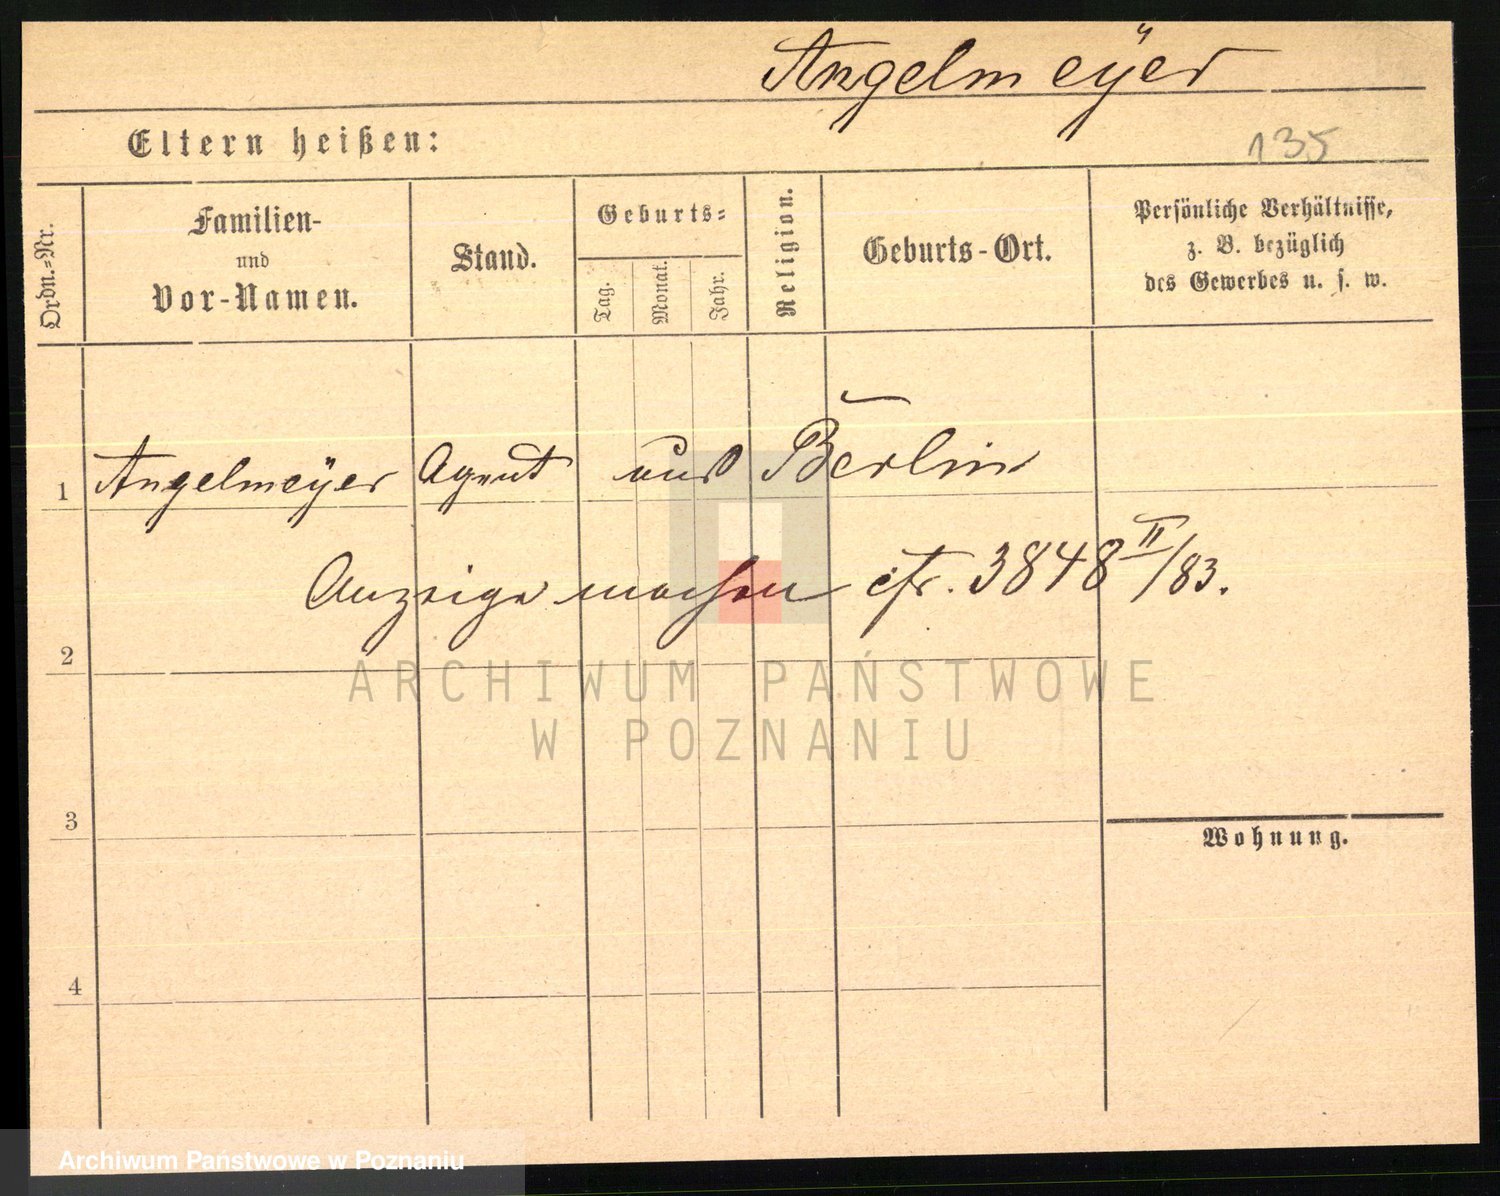 Angelmeÿer
Eltern heißen:
135
Ordn.-Nr.
Familien-
und
Vor-Namen.
Stand.
Geburts-
Tag.
Monat.
Jahr.
Religion.
Geburts-Ort.
Persönliche Verhältnisse,
z. B. bezüglich
des Gewerbes u. s. w.
1 Angelmeÿer Agent aus Berlin
Anzeige machen cfr. 3848 II/83.
2
ARCHIWUM PAŃSTWOWE
W POZNANIU
3
Wohnung.
4
Archiwum Państwowe w Poznaniu